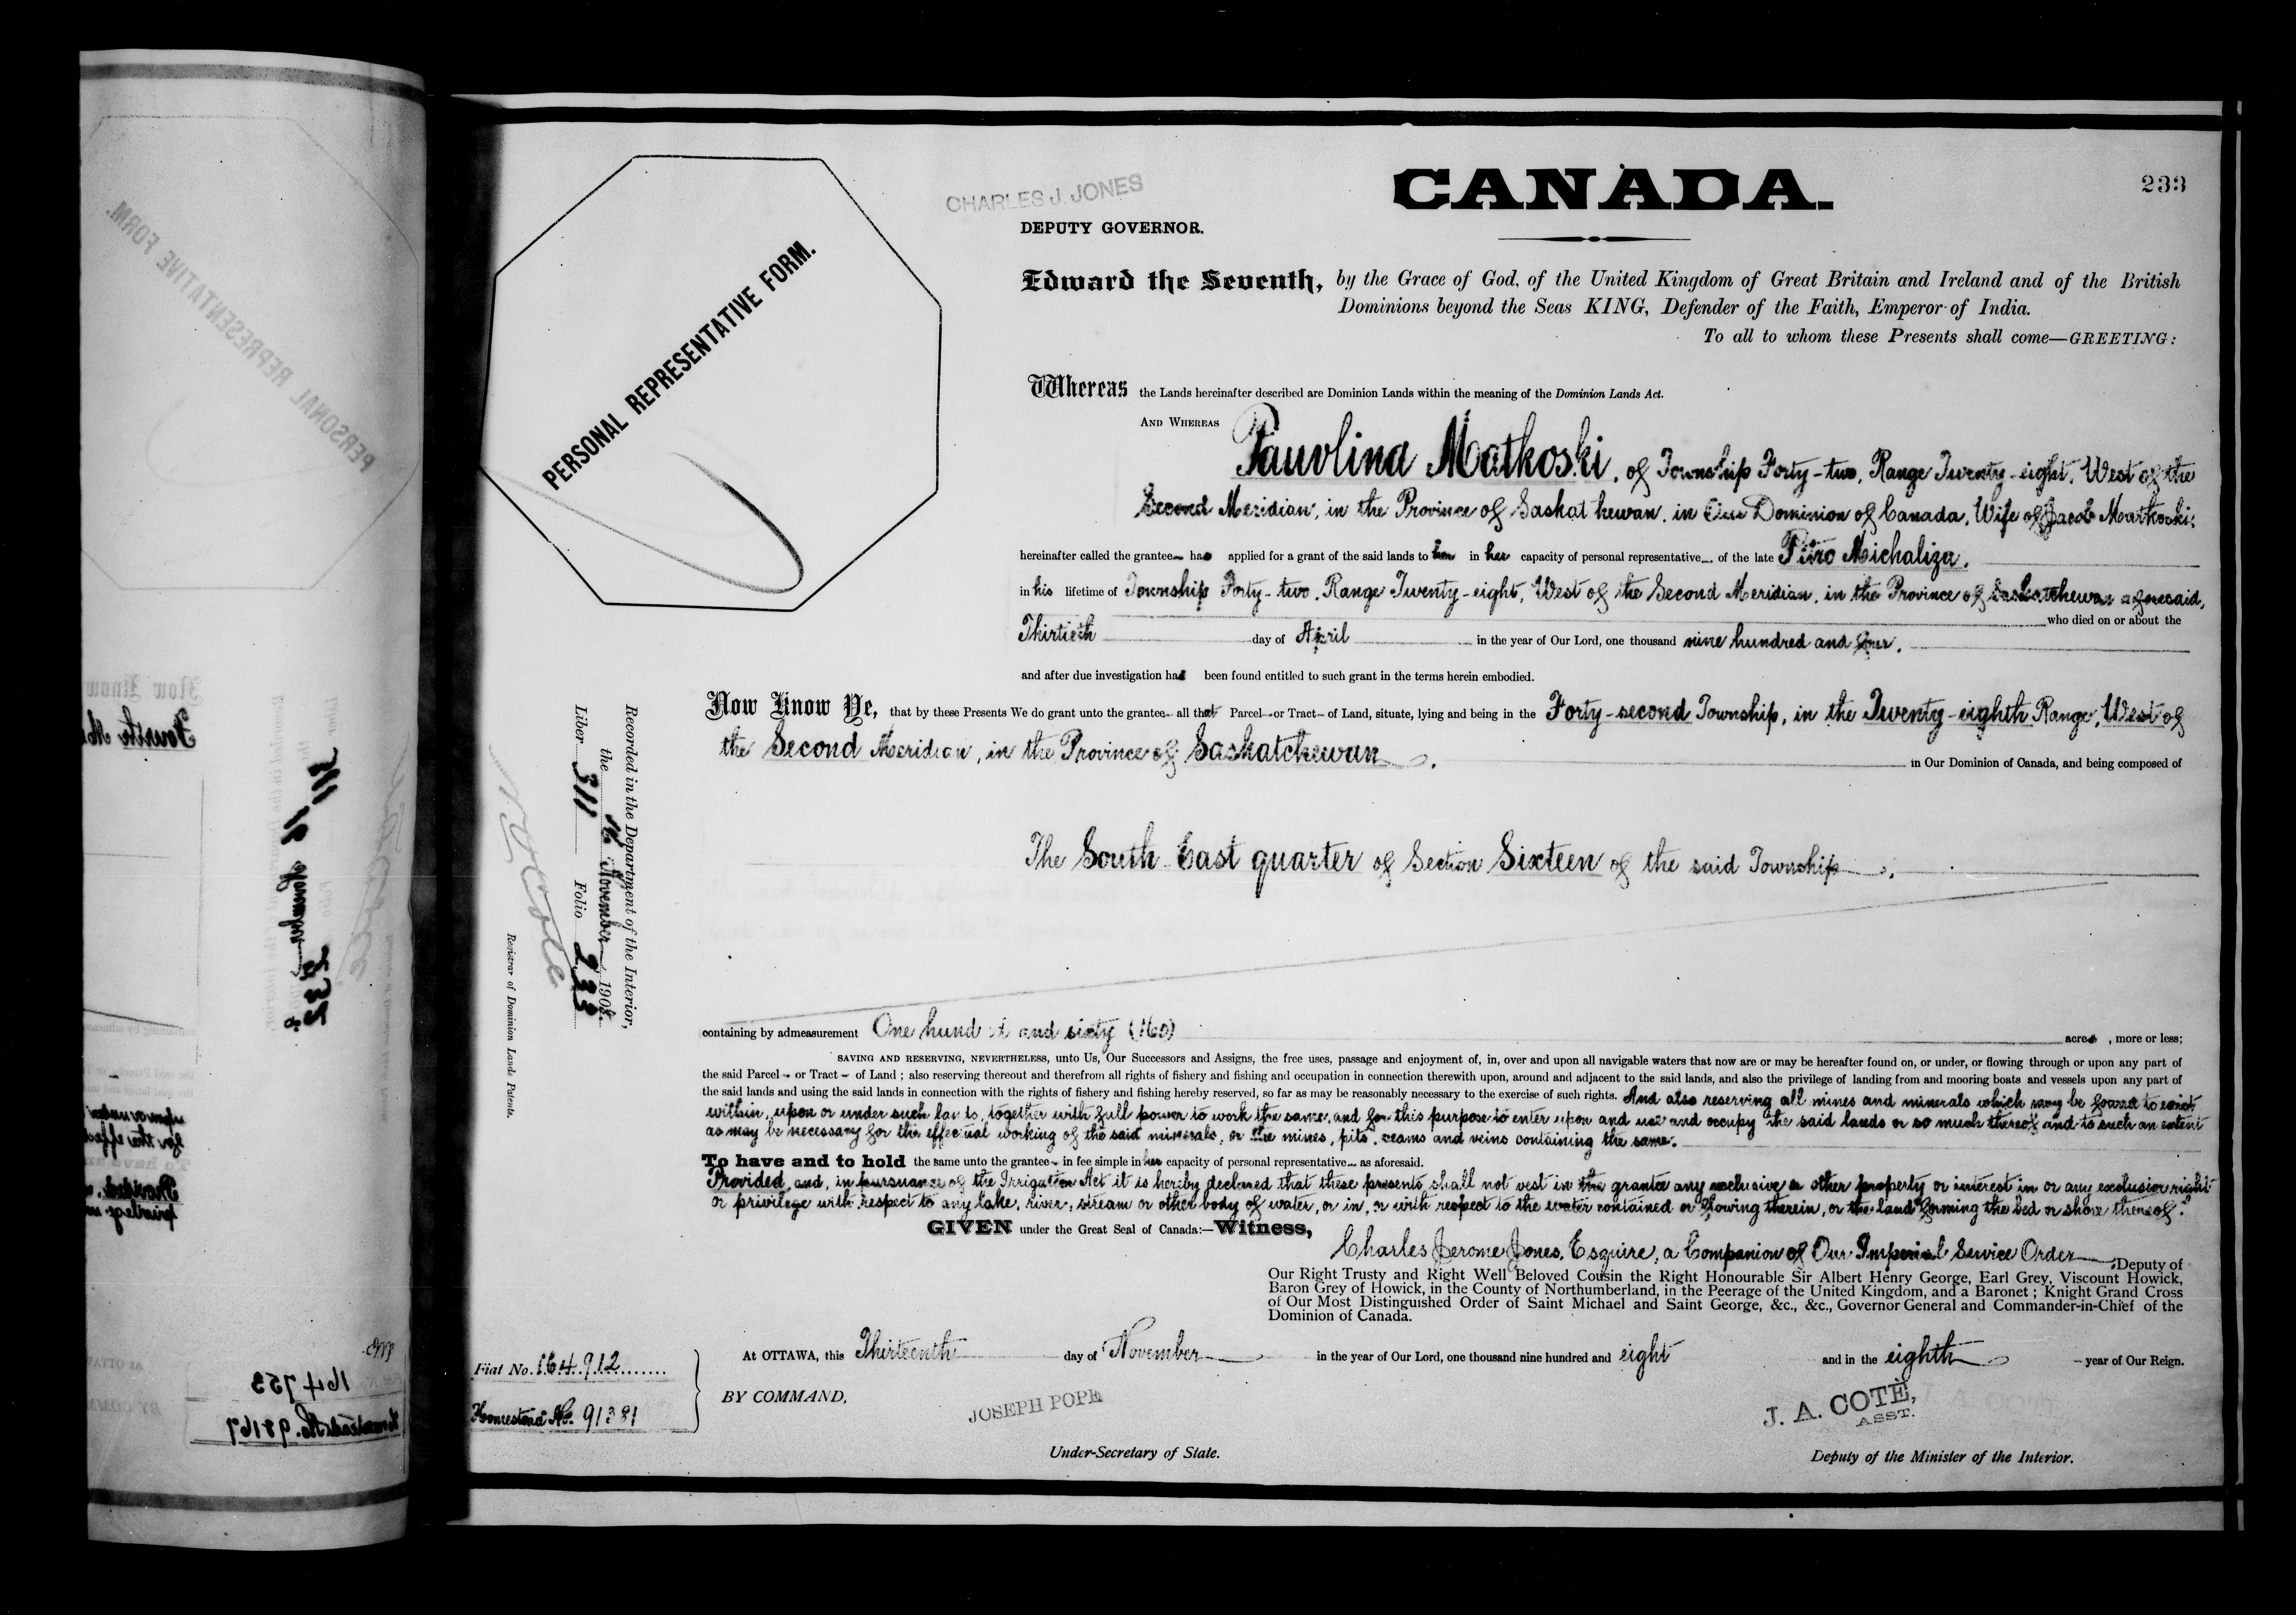 233
CHARLES J. JONES
DEPUTY GOVERNOR.
CANADA.
PERSONAL REPRESENTATIVE FORM.
Edward the Seventh, by the Grace of God, of the United Kingdom of Great Britain and Ireland and of the British
Dominions beyond the Seas KING, Defender of the Faith, Emperor of India.
To all to whom these Presents shall come—GREETING:
Whereas the Lands hereinafter described are Dominion Lands within the meaning of the Dominion Lands Act.
AND WHEREAS Pauvlina Matkoski, of Township Forty-two, Range Twenty-eight, West of the
Second Meridian, in the Province of Saskatchewan, in Our Dominion of Canada, Wife of Jacob Matkoski;
hereinafter called the grantee has applied for a grant of the said lands to her in her capacity of personal representative of the late Petro Michaliza,
in his lifetime of Township Forty-two, Range Twenty-eight, West of the Second Meridian, in the Province of Saskatchewan aforesaid,
who died on or about the
Thirtieth day of April in the year of Our Lord, one thousand nine hundred and four,
and after due investigation has been found entitled to such grant in the terms herein embodied.
Now Know Ye, that by these Presents We do grant unto the grantee all that Parcel or Tract of Land, situate, lying and being in the Forty-second Township, in the Twenty-eighth Range, West of
the Second Meridian, in the Province of Saskatchewan,
in Our Dominion of Canada, and being composed of
The South East quarter of Section Sixteen of the said Township,
containing by admeasurement One hundred and sixty (160) acres, more or less;
SAVING AND RESERVING, NEVERTHELESS, unto Us, Our Successors and Assigns, the free uses, passage and enjoyment of, in, over and upon all navigable waters that now are or may be hereafter found on, or under, or flowing through or upon any part of
the said Parcel or Tract of Land; also reserving thereout and therefrom all rights of fishery and fishing and occupation in connection therewith upon, around and adjacent to the said lands, and also the privilege of landing from and mooring boats and vessels upon any part of
the said lands and using the said lands in connection with the rights of fishery and fishing hereby reserved, so far as may be reasonably necessary to the exercise of such rights. And also reserving all mines and minerals which may be found to exist
within, upon or under such lands, together with full power to work the same, and for this purpose to enter upon and use and occupy the said lands or so much thereof and to such an extent
as may be necessary for the effectual working of the said minerals, or the mines, pits, seams and veins containing the same.
To have and to hold the same unto the grantee in fee simple in her capacity of personal representative as aforesaid.
Provided, and, in pursuance of the Irrigation Act it is hereby declared that these presents shall not vest in the grantee any exclusive or other property or interest in or any exclusive right
or privilege with respect to any lake, river, stream or other body of water, or in, or with respect to the water contained or flowing therein, or the land forming the bed or shore thereof.
GIVEN under the Great Seal of Canada:—Witness,
Charles Jerome Jones, Esquire, a Companion of Our Imperial Service Order, Deputy of
Our Right Trusty and Right Well Beloved Cousin the Right Honourable Sir Albert Henry George, Earl Grey, Viscount Howick,
Baron Grey of Howick, in the County of Northumberland, in the Peerage of the United Kingdom, and a Baronet; Knight Grand Cross
of Our Most Distinguished Order of Saint Michael and Saint George, &c., &c., Governor General and Commander-in-Chief of the
Dominion of Canada.
At OTTAWA, this Thirteenth day of November in the year of Our Lord, one thousand nine hundred and eight and in the eighth year of Our Reign.
BY COMMAND,
JOSEPH POPE
Under-Secretary of State.
J. A. COTÉ,
ASST.
Deputy of the Minister of the Interior.
Fiat No. 164912
Homestead No. 91381
Recorded in the Department of the Interior,
the 16 November 1908.
Liber 311 Folio 233
Registrar of Dominion Lands Patents.
PERSONAL REPRESENTATIVE FORM.
164753
Homestead No. 98167